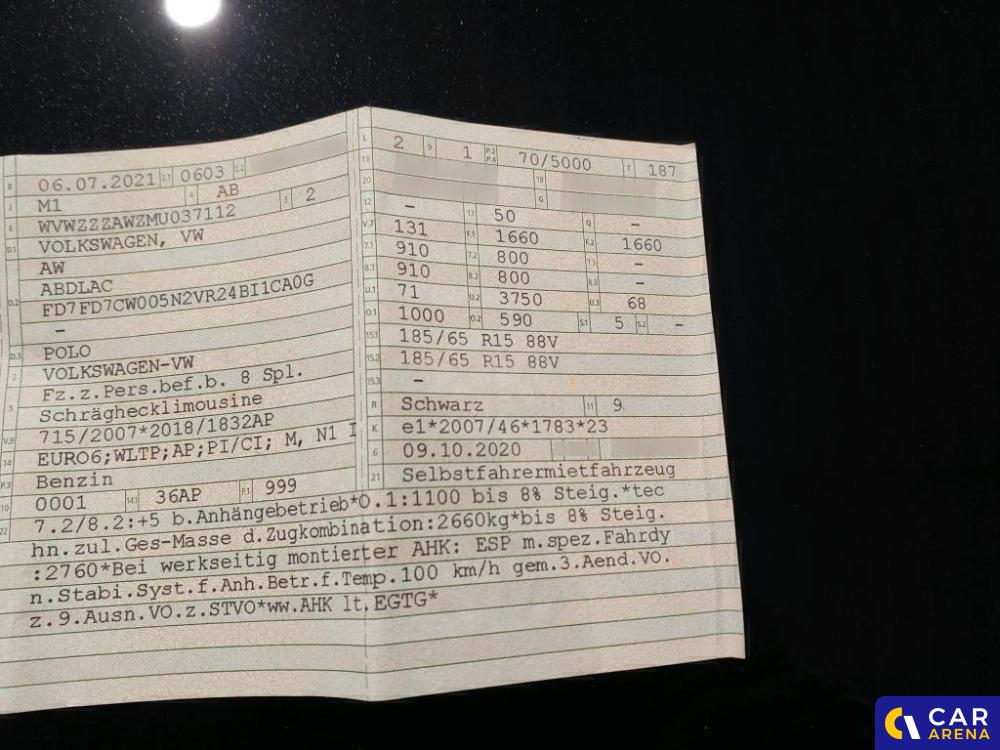 B 06.07.2021 2.1 0603 2.2
J M1 4 AB 3 2
E WVWZZZAWZMU037112
D.1 VOLKSWAGEN, VW
AW
D.2 ABDLAC
FD7FD7CW005N2VR24BI1CA0G
–
D.3 POLO
2 VOLKSWAGEN-VW
5 Fz.z.Pers.bef.b. 8 Spl.
Schräghecklimousine
V.9 715/2007*2018/1832AP
14 EURO6;WLTP;AP;PI/CI; M, N1 I
P.3 Benzin
10 0001 14.1 36AP P.1 999
L 2 9 1 P.2 P.4 70/5000 T 187
18 19
20 G
12 – 13 50 Q –
V.7 131 F.1 1660 F.2 1660
7.1 910 7.2 800 7.3 –
8.1 910 8.2 800 8.3 –
U.1 71 U.2 3750 U.3 68
O.1 1000 O.2 590 S.1 5 S.2 –
15.1 185/65 R15 88V
15.2 185/65 R15 88V
15.3 –
R Schwarz 11 9
K e1*2007/46*1783*23
6 09.10.2020
21 Selbstfahrermietfahrzeug
22 7.2/8.2:+5 b.Anhängebetrieb*O.1:1100 bis 8% Steig.*tec
hn.zul.Ges-Masse d.Zugkombination:2660kg*bis 8% Steig.
:2760*Bei werkseitig montierter AHK: ESP m.spez.Fahrdy
n.Stabi.Syst.f.Anh.Betr.f.Temp.100 km/h gem.3.Aend.VO.
z.9.Ausn.VO.z.STVO*ww.AHK lt.EGTG*
CAR
ARENA